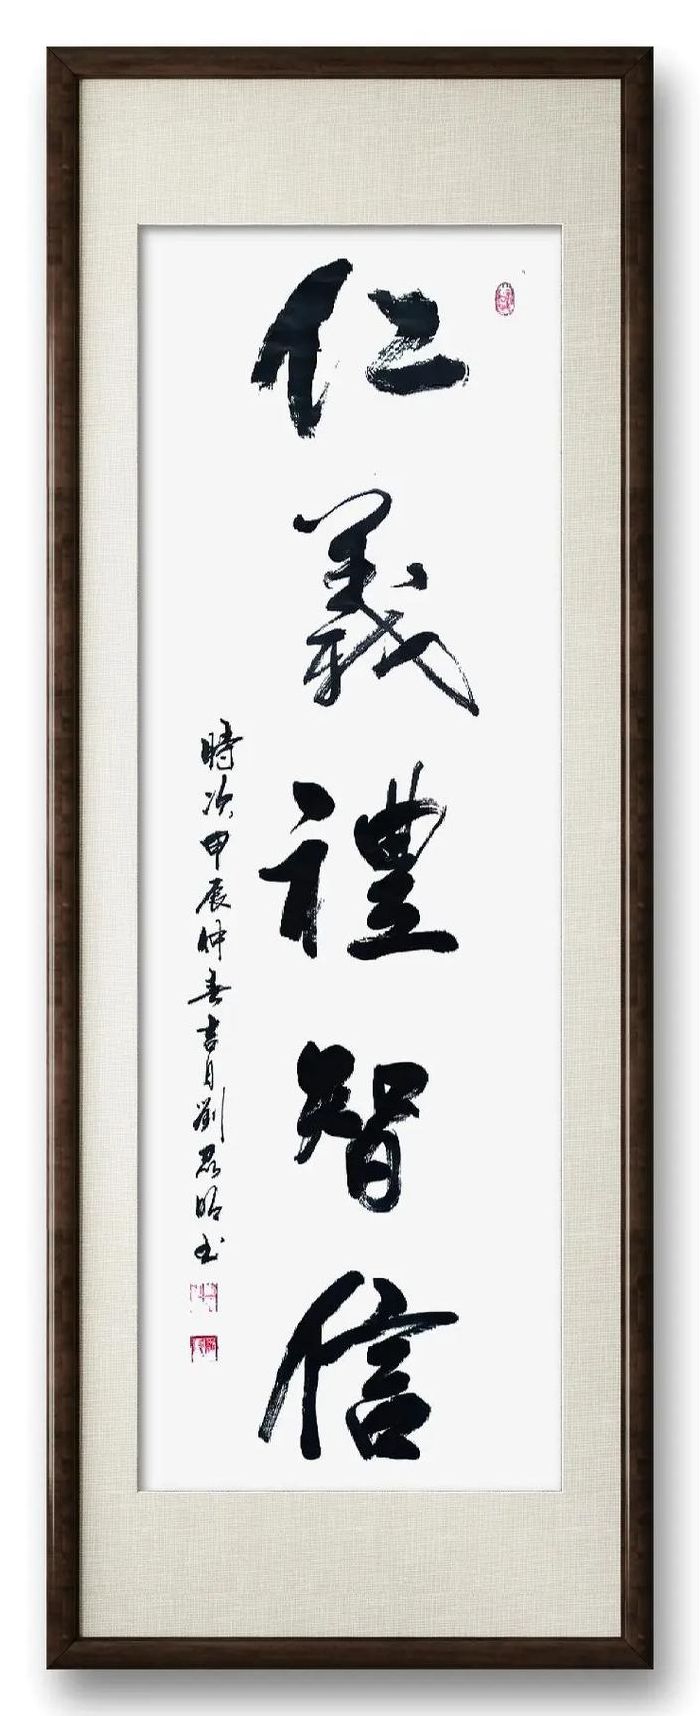 仁義禮智信
時次甲辰仲春吉日劉君昭书